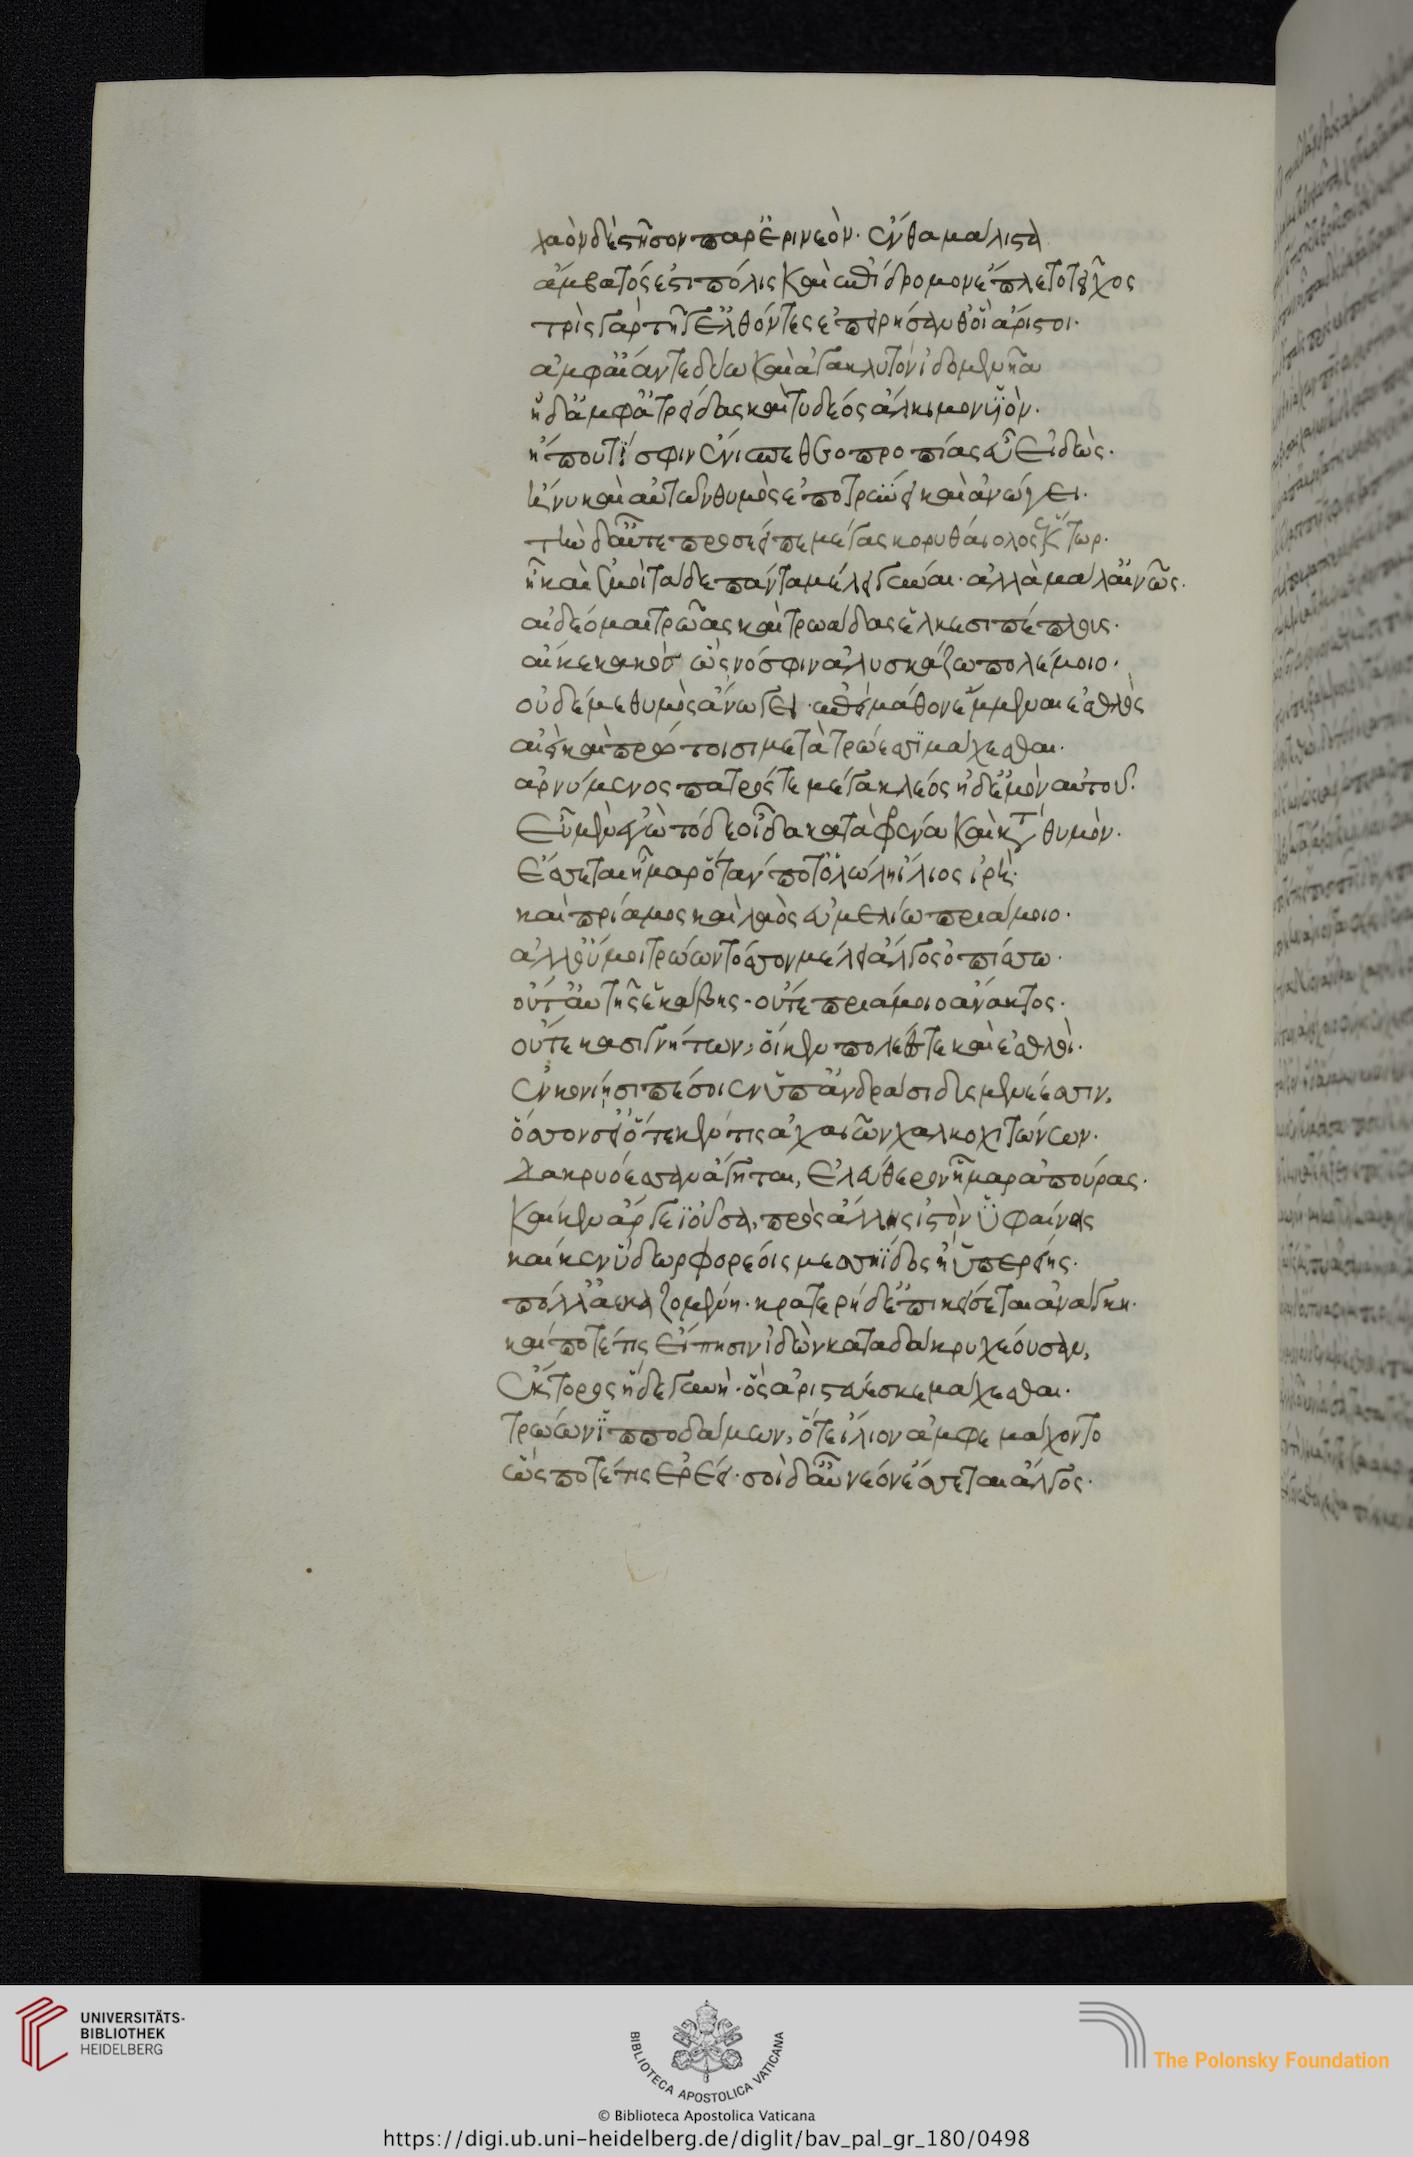 λαὸν δὲ στῆσον παρ' ἐρινεὸν· ἔνθα μάλιστα
ἄμβατός ἐστι πόλις καὶ ἐπίδρομον ἔπλετο τεῖχος
τρὶς γὰρ τῆγ' ἐλθόντες ἐπειρήσανθ' οἱ ἄριστοι·
ἀμφ' αἴαντε δύω καὶ ἀγακλυτὸν ἰδομενῆα
ἠδ' ἀμφ' ἀτρείδας καὶ τυδέος ἄλκιμον υἱὸν·
ἤ πού τίς σφιν ἔνισπε θεοπροπίας εὖ εἰδὼς·
ἤ νυ καὶ αὐτῶν θυμὸς ἐποτρύνει καὶ ἀνώγει·
τὴν δ' αὖτε προσέειπε μέγας κορυθαίολος ἕκτωρ·
ἦ καὶ ἐμοὶ τάδε πάντα μέλει γύναι· ἀλλὰ μάλ' αἰνῶς·
αἰδέομαι τρῶας καὶ τρωάδας ἑλκεσιπέπλους·
αἴ κε κακὸς ὣς νόσφιν ἀλυσκάζω πολέμοιο·
οὐδέ με θυμὸς ἄνωγει· ἐπεὶ μάθον ἔμμεναι ἐσθλὸς
αἰεὶ καὶ πρώτοισι μετὰ τρώεσσι μάχεσθαι·
ἀρνύμενος πατρός τε μέγα κλέος ἠδ' ἐμὸν αὐτοῦ·
εὖ μὲν ἐγὼ τόδε οἶδα κατὰ φρένα καὶ κατὰ θυμὸν·
ἔσσεται ἦμαρ ὅταν ποτ' ὀλώλη ἴλιος ἱρὴ·
καὶ πρίαμος καὶ λαὸς ἐυμελίω πριάμοιο·
ἀλλ' οὔ μοι τρώων τόσσον μέλει ἄλγος ὀπίσσω·
οὔτ' αὐτῆς ἑκάβης· οὔτε πριάμοιο ἄνακτος·
οὔτε κασιγνήτων, οἵ κεν πολέες τε καὶ ἐσθλοὶ·
ἐν κονίῃσι πέσοιεν ὑπ' ἀνδράσι δυσμενέεσσιν,
ὅσσον σεῖ' ὅτε κέν τις ἀχαιῶν χαλκοχιτώνων·
δακρυόεσσαν ἄγηται, ἐλεύθερον ἦμαρ ἀπούρας·
καί κεν ἄργει ἰοῦσα, πρὸς ἄλλης ἱστὸν ὑφαίνοις
καί κεν ὕδωρ φορέοις μεσσηίδος ἢ ὑπερείης·
πόλλ' ἀεκαζομένη· κρατερὴ δ' ἐπικείσετ' ἀνάγκη·
καί ποτέ τις εἴπησιν ἰδὼν κατὰ δάκρυ χέουσαν,
ἕκτορος ἥδε γυνὴ· ὃς ἀριστεύεσκε μάχεσθαι·
τρώων ἱπποδάμων, ὅτε ἴλιον ἀμφεμάχοντο
ὥς ποτέ τις ἐρέει· σοὶ δ' αὖ νέον ἔσσεται ἄλγος·
UNIVERSITÄTS-
BIBLIOTHEK
HEIDELBERG
BIBLIOTECA APOSTOLICA VATICANA
The Polonsky Foundation
© Biblioteca Apostolica Vaticana
https://digi.ub.uni-heidelberg.de/diglit/bav_pal_gr_180/0498